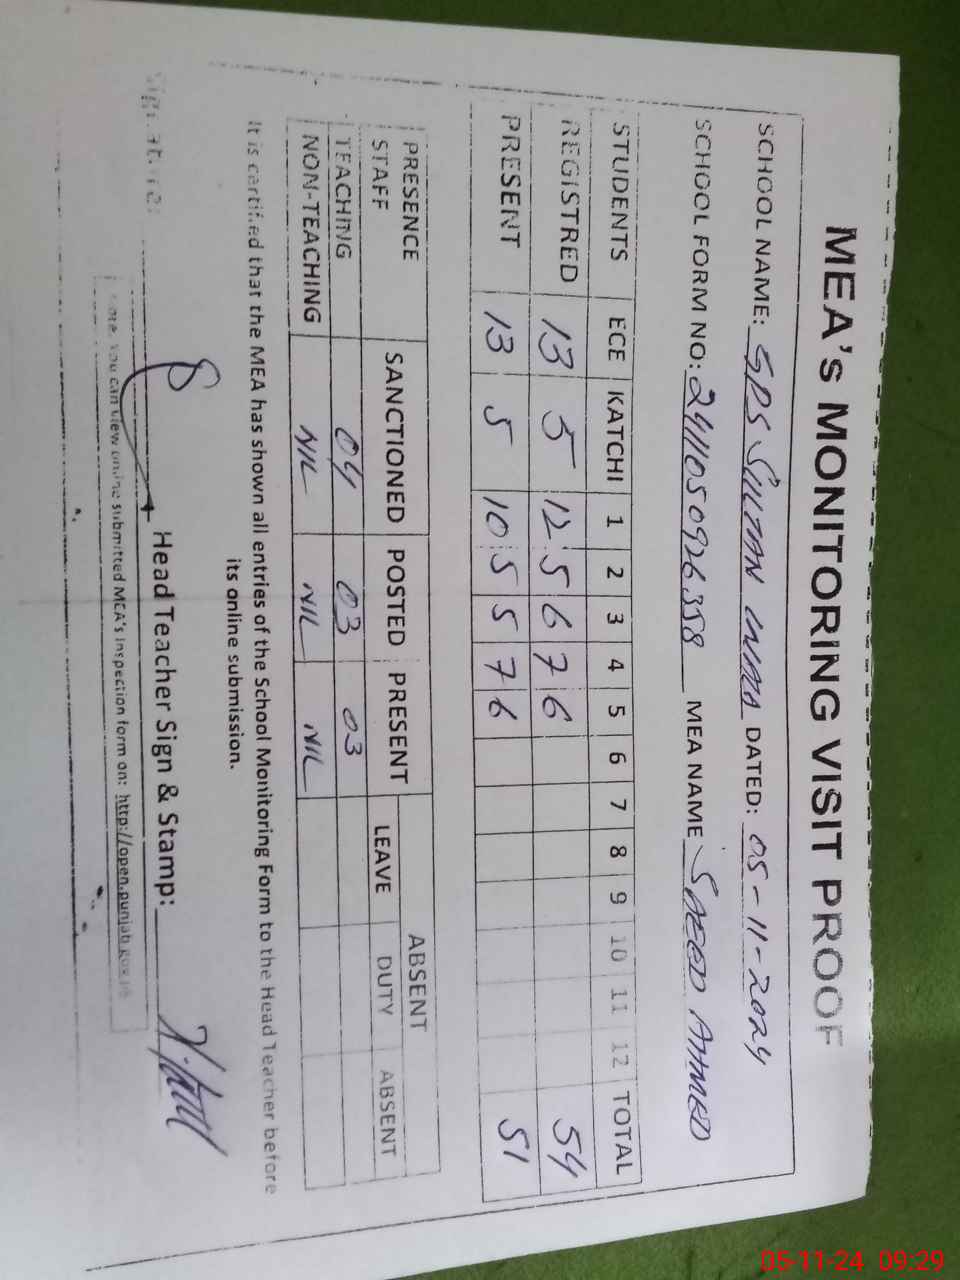 MEA's MONITORING VISIT PROOF
SCHOOL NAME: GPS SULTAN DATED: 05-11-2024
SCHOOL FORM NO: 2411050926358 MEA NAME SAEED AHMED
STUDENTS ECE KATCHI 1 2 3 4 5 6 7 8 9 10 11 12 TOTAL
REGISTRED 13 5 12 5 6 7 6 54
PRESENT 13 5 10 5 5 7 6 51
PRESENCE ABSENT
STAFF SANCTIONED POSTED PRESENT LEAVE DUTY ABSENT
TEACHING 04 03 03
NON-TEACHING NIL NIL NIL
It is certified that the MEA has shown all entries of the School Monitoring Form to the Head Teacher before
its online submission.
Signature: Head Teacher Sign & Stamp:
Note: You can view online submitted MEA's Inspection form on: http://open.punjab.gov.pk
05-11-24 09:29